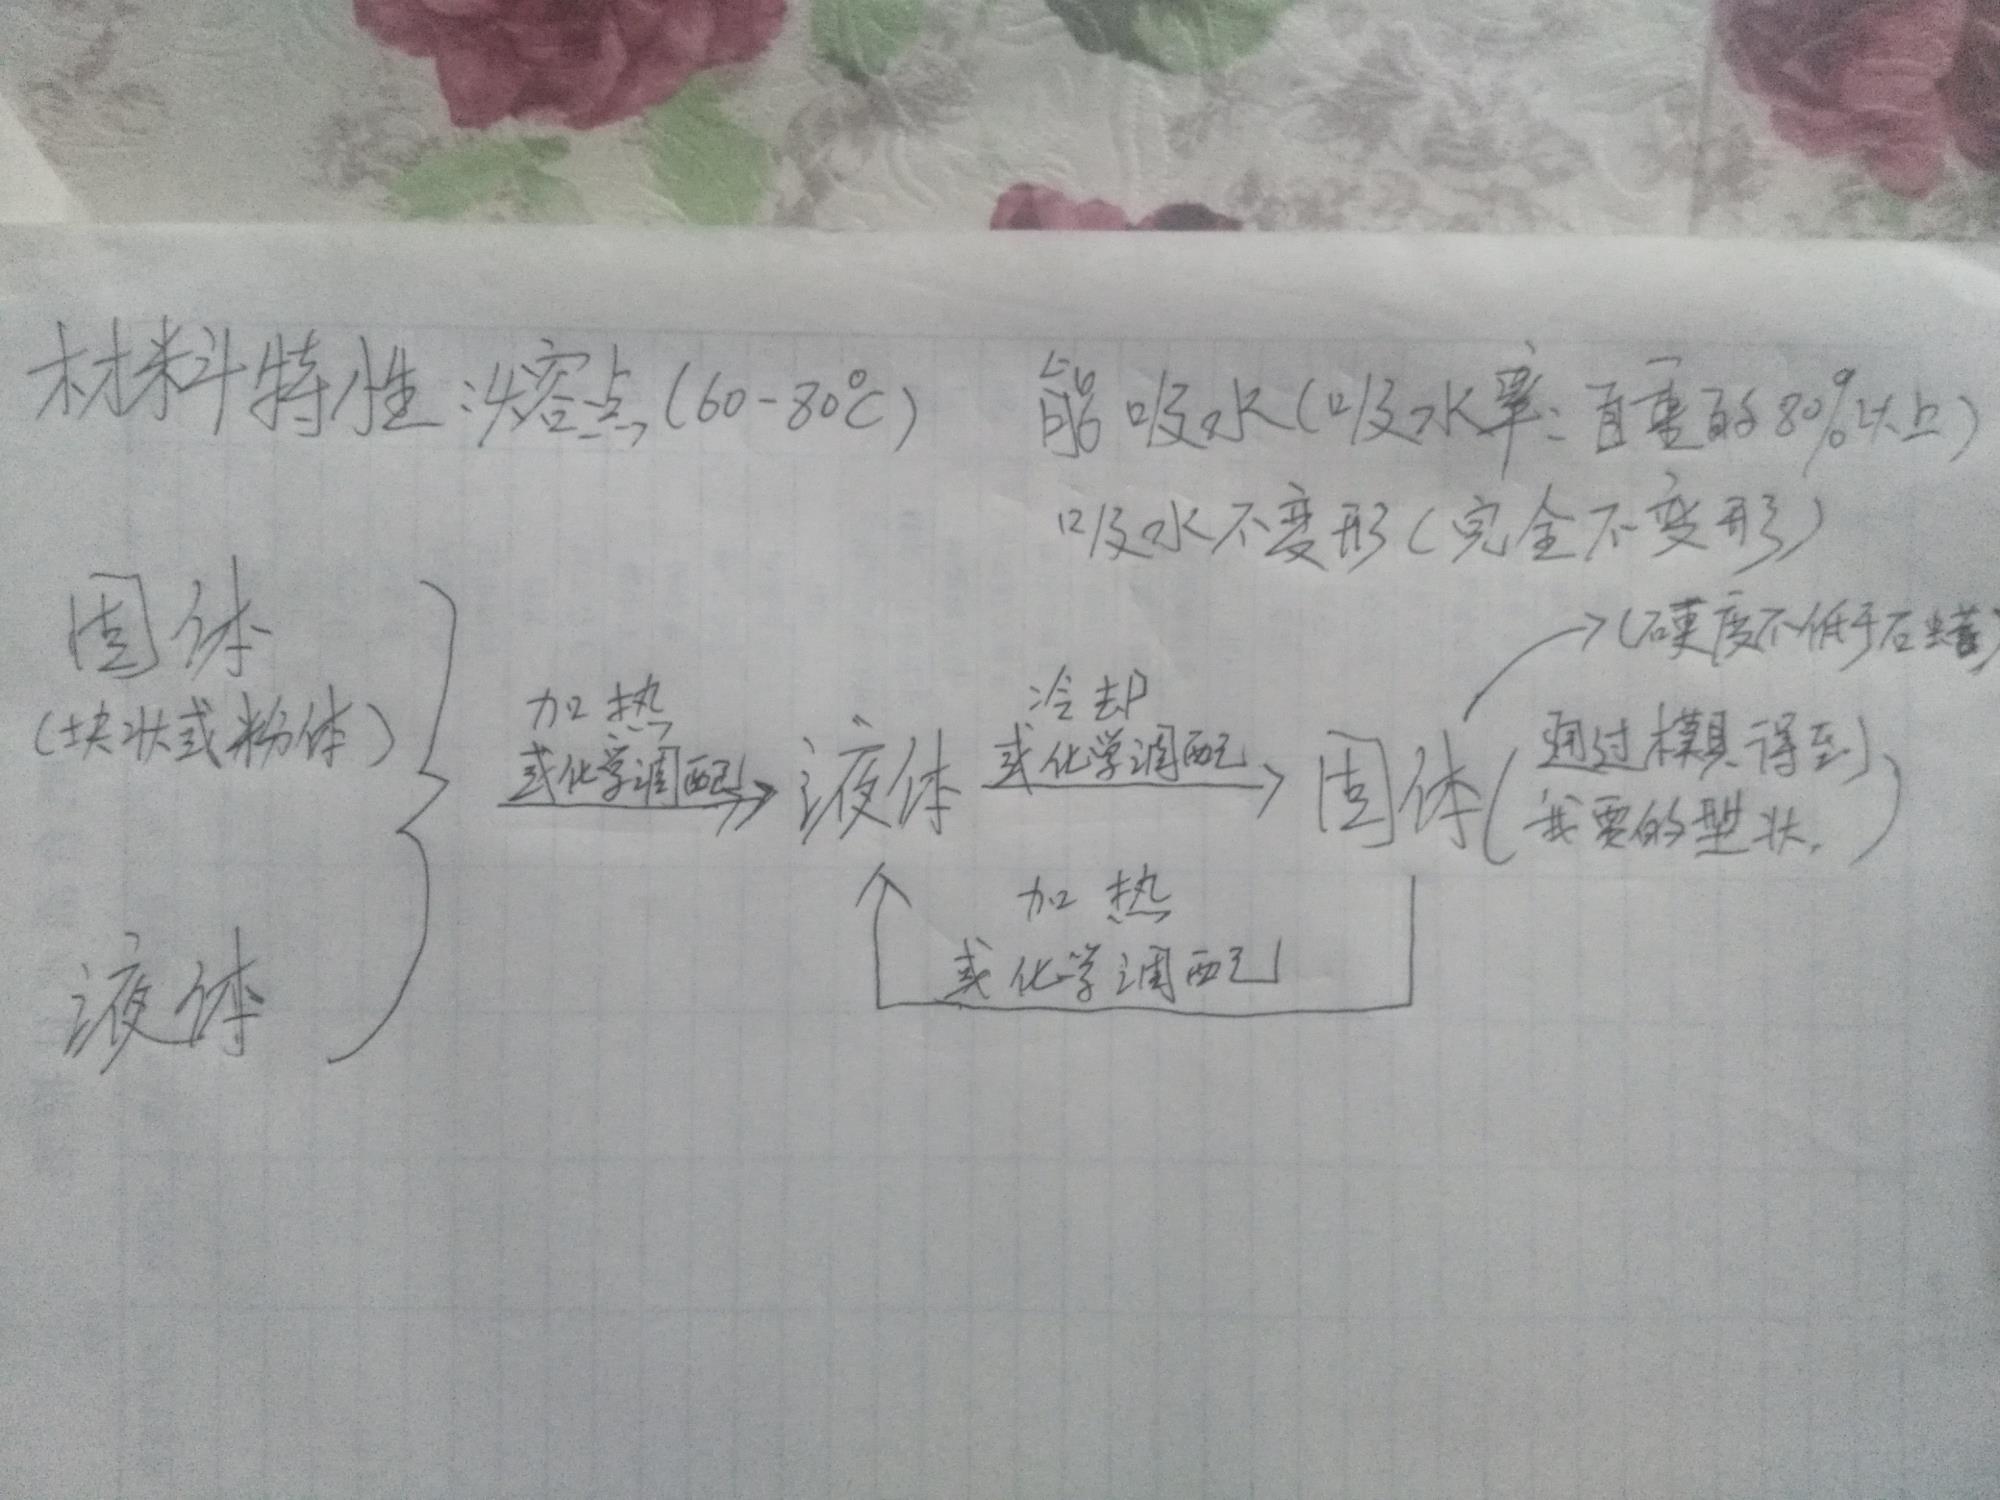 材料特性:熔点(60-80℃) 能吸水(吸水率:自重的80%以上)
吸水不变形(完全不变形)
固体
(块状或粉体)
液体
加热
或化学调配
液体
冷却
或化学调配
固体
(硬度不低于石蜡)
(通过模具得到
我要的型状.)
加热
或化学调配